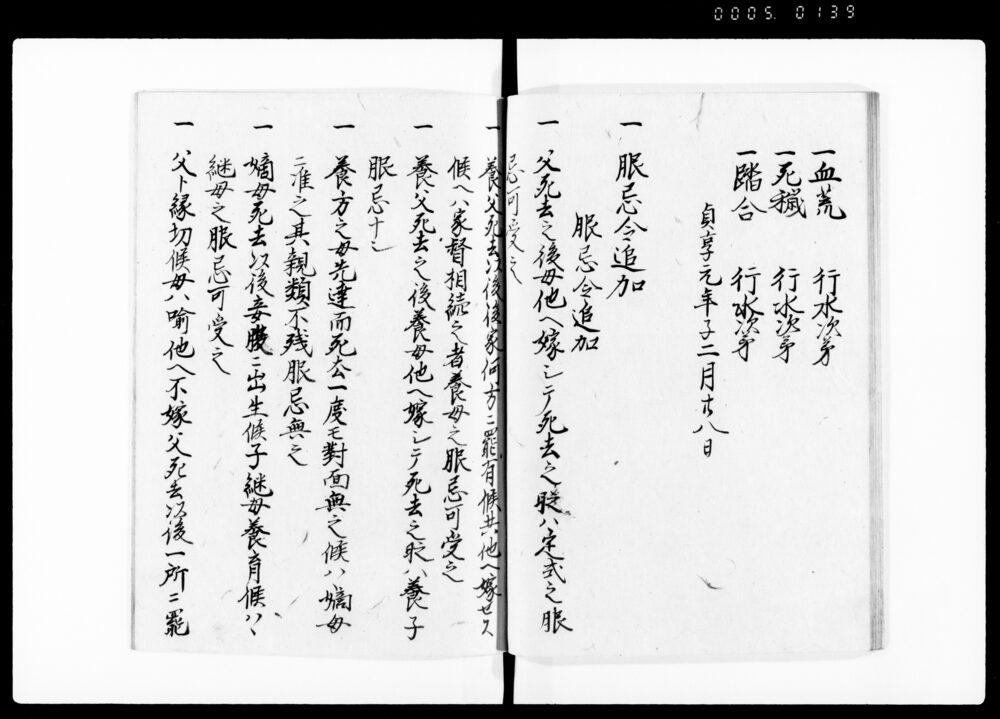 0005.0139
一血荒　行水次第
一死穢　行水次第
一踏合　行水次第
貞享元年子二月廿八日
一　服忌令追加
服忌令追加
一　父死去之後母他ヘ嫁シテ死去之時ハ定式之服
忌可受之
一　養父死去以後後家何方ニ罷有候共他ヘ嫁セス
候ヘハ家督相続之者養母之服忌可受之
一　養父死去之後養母他ヘ嫁シテ死去之時ハ養子
服忌ナシ
一　養方之母先達而死去一度モ對面無之候ハ嫡母
ニ准之其親類不残服忌無之
一　嫡母死去以後妾腹ニ出生候子継母養育候ハヽ
継母之服忌可受之
一　父ト縁切候母ハ喻他ヘ不嫁父死去以後一所ニ罷